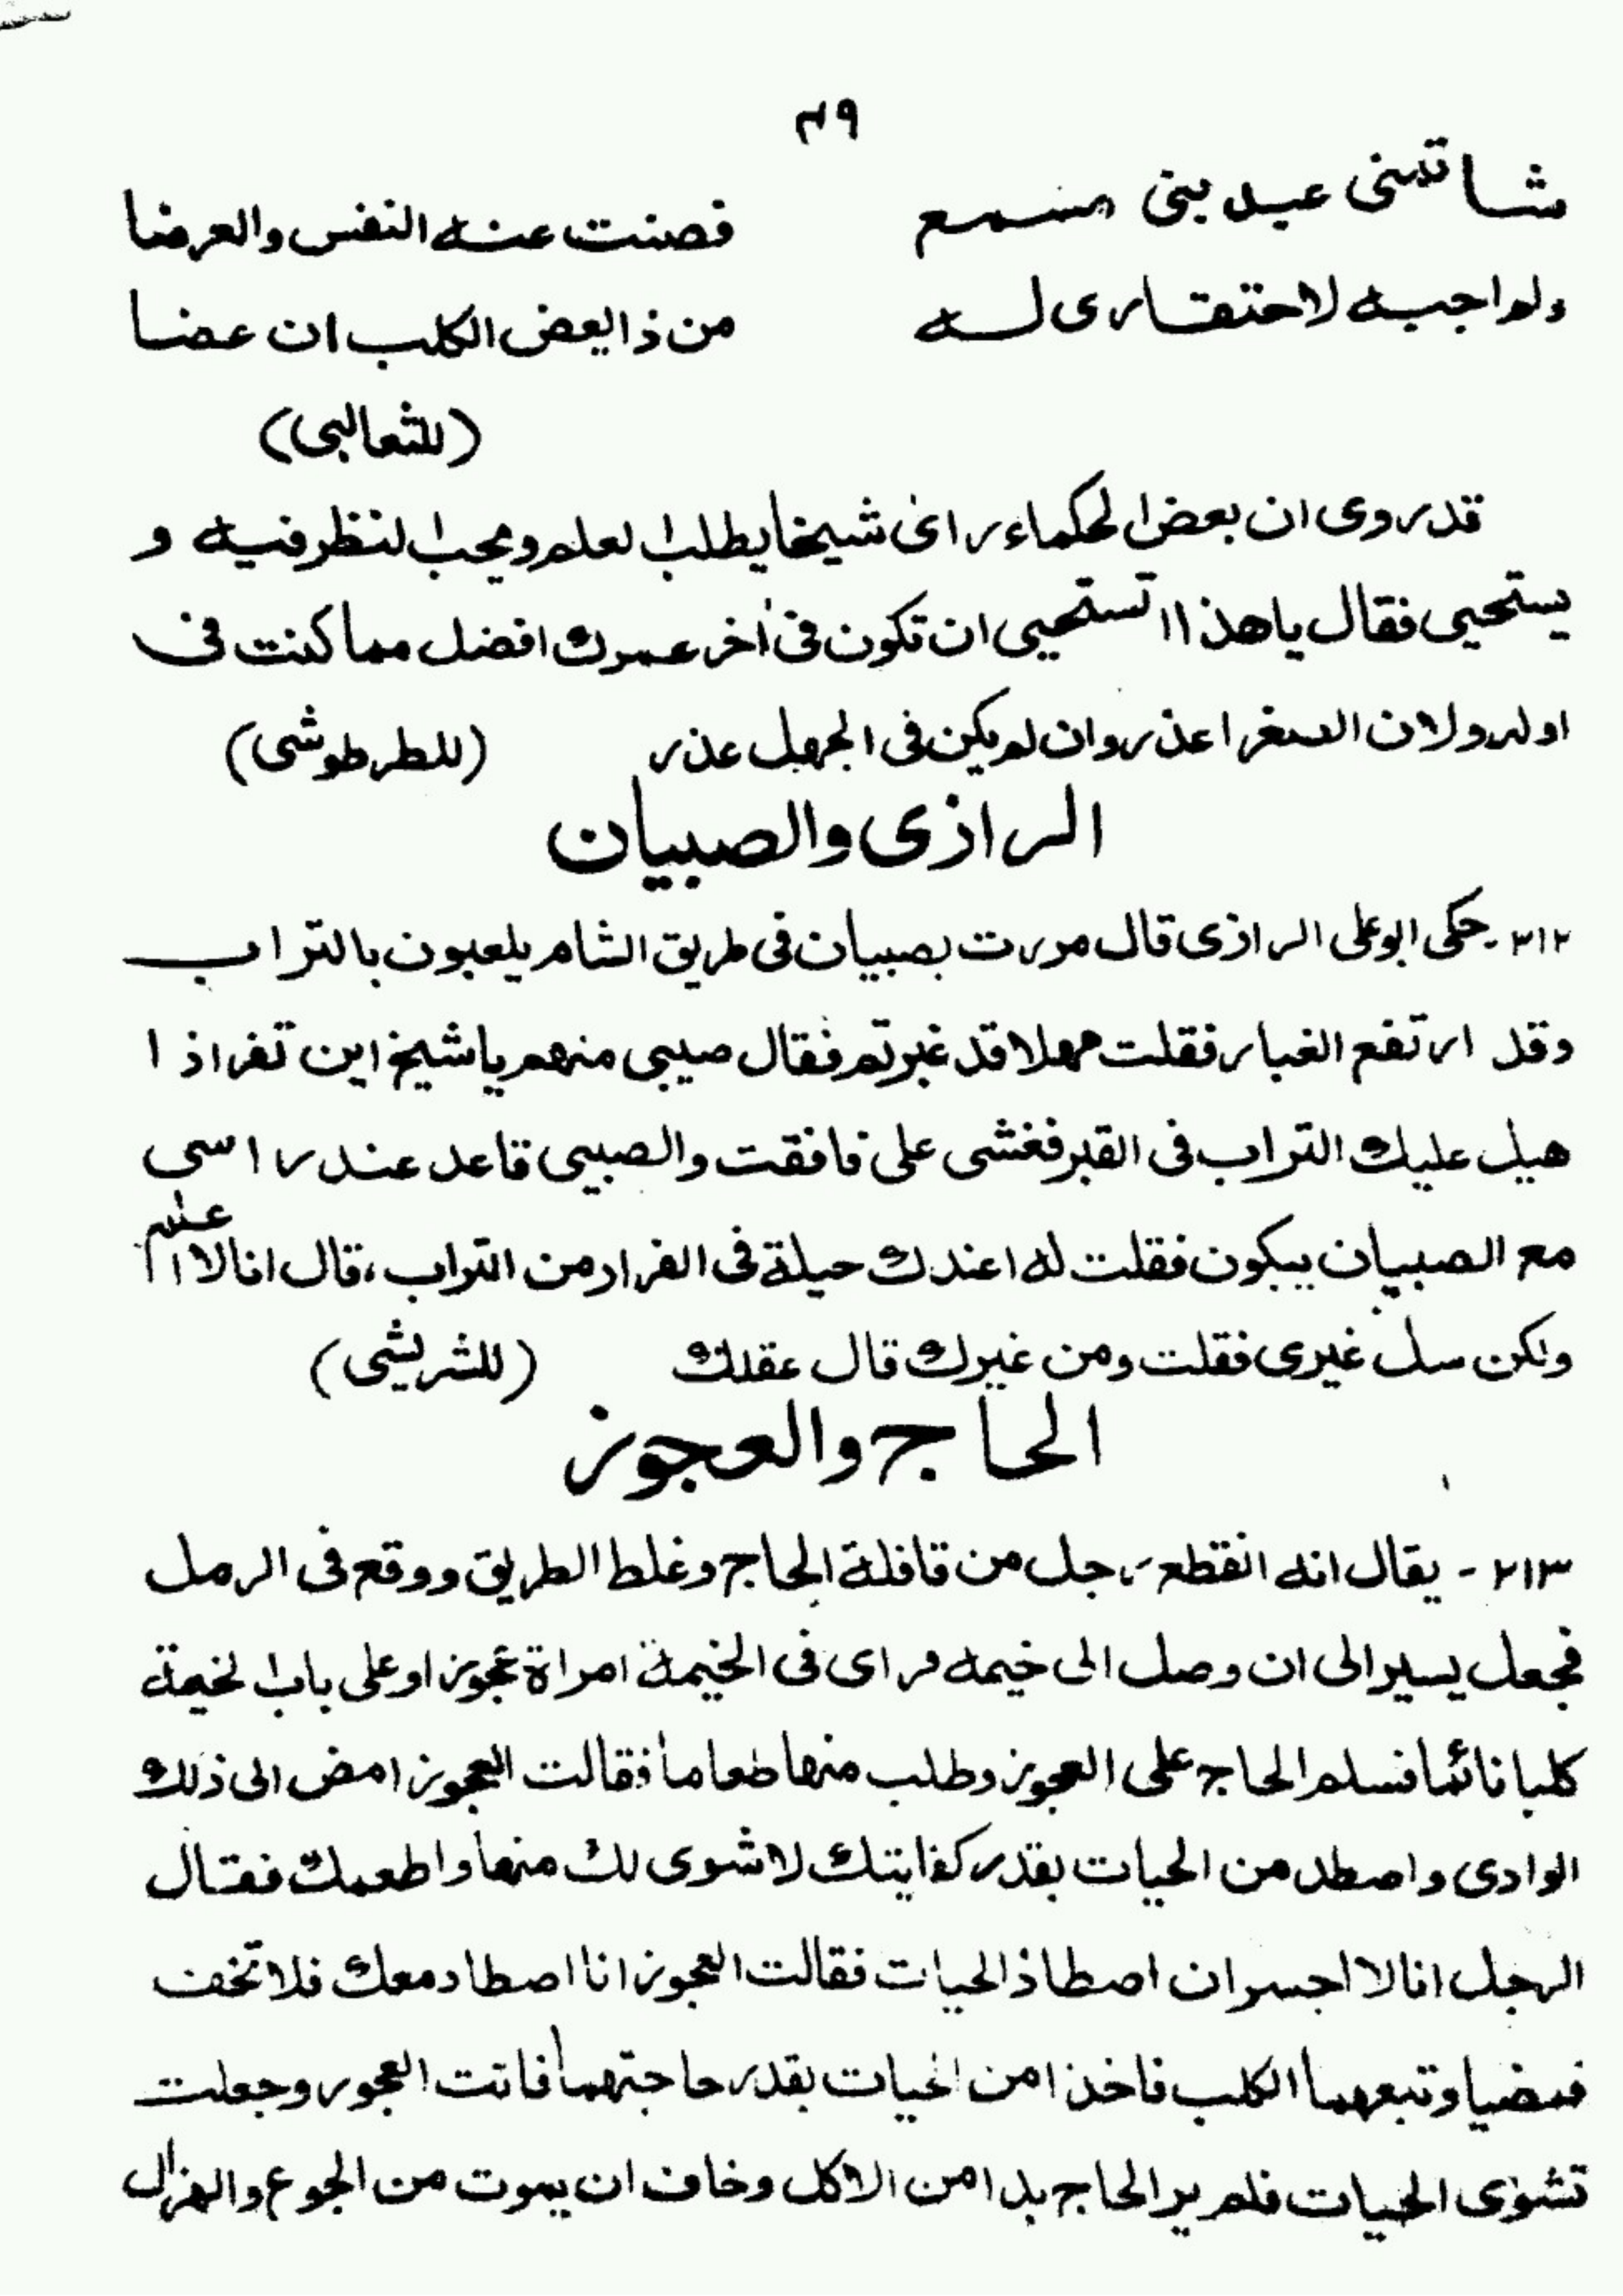 ٤٩
شاتمنى عبد بنى مسمع فصنت عنه النفس والعرضا
ولم اجبه لاحتقارى له من ذا يعض الكلب ان عضا
(للثعالبى)
قد روى ان بعض الحكماء راى شيخا يطلب العلم ويحب النظر فيه و
يستحيى فقال يا هذا اتستحيى ان تكون فى اٰخر عمرك افضل مما كنت فى
اوله ولان الصغر اعذر وان لم يكن فى الجهل عذر (للطرطوشى)
الرازى والصبيان
٣١٢ - حكى ابو على الرازى قال مررت بصبيان فى طريق الشام يلعبون بالتراب
وقد ارتفع الغبار فقلت مهلا قد غبرتم فقال صبيى منهم يا شيخ اين تفر اذا
هيل عليك التراب فى القبر فغشى على فافقت والصبيى قاعد عند راسى
مع الصبيان يبكون فقلت له اعندك حيلة فى الفرار من التراب، قال انا لا اعلم
ولكن سل غيرى فقلت ومن غيرك قال عقلك (للشريشى)
الحاج والعجوز
٢١٣ - يقال انه انقطع رجل من قافلة الحاج وغلط الطريق ووقع فى الرمل
فجعل يسير الى ان وصل الى خيمه فراى فى الخيمة امراة عجوزا وعلى باب الخيمة
كلبا نائما فسلم الحاج على العجوز وطلب منها طعاما فقالت العجوز امض الى ذلك
الوادى واصطد من الحيات بقدر كفايتك لاشوى لك منها واطعمك فقال
الرجل انا لا اجسر ان اصطاذ الحيات فقالت العجوز انا اصطاد معك فلا تخف
فمضيا وتبعهما الكلب فاخذا من الحيات بقدر حاجتهما فاتت العجور وجعلت
تشوى الحيات فلم ير الحاج بدا من الاكل وخاف ان يموت من الجوع والهزال